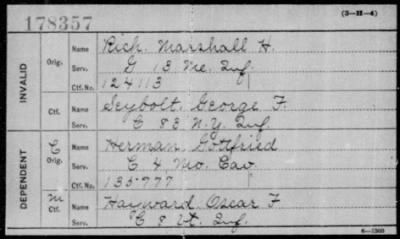 178357
(3—11—4)
INVALID
Orig.
Name Rich. Marshall H.
Serv. G 13 Me. Inf.
Ctf. No. 124113
Ctf.
Name Seybolt. George F.
Serv. C 83 N.Y. Inf.
DEPENDENT
C
Orig.
Name Herman Gottfried
Serv. C 4 Mo. Cav
Ctf. No. 135777
M
Ctf.
Name Hayward Oscar F
Serv. C 8 Vt. Inf.
6—1380